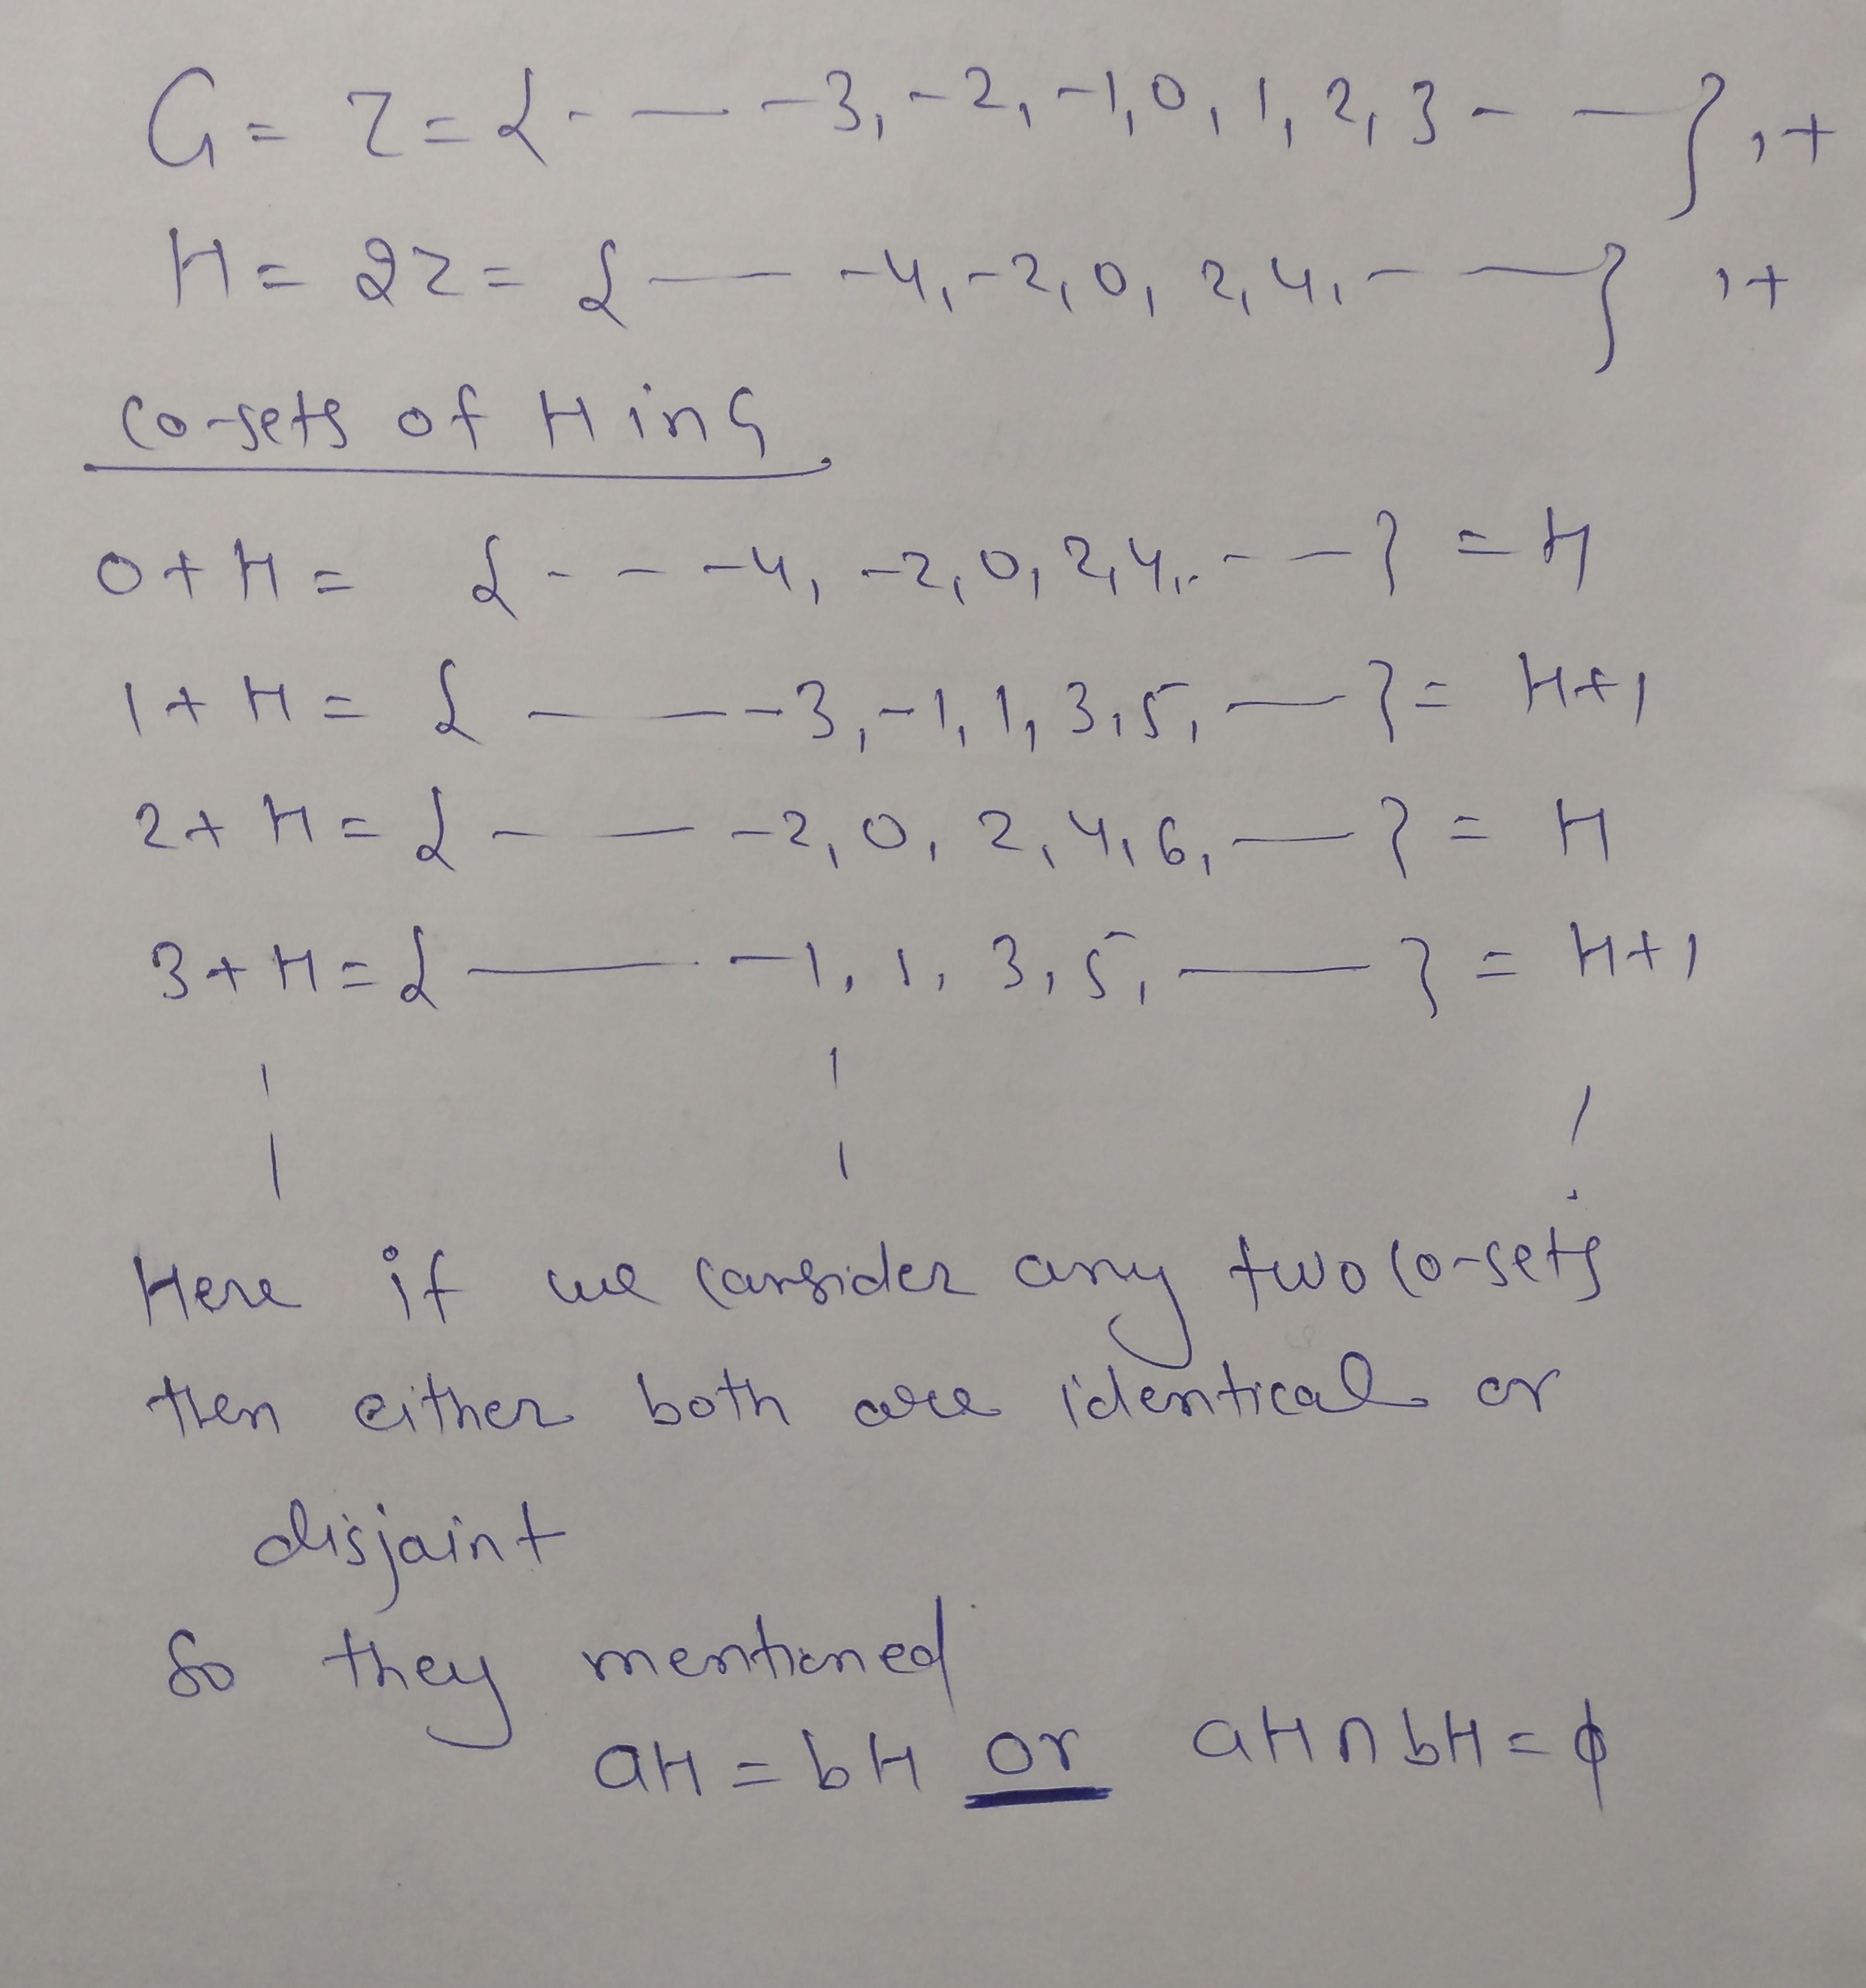 G = Z = { - - - -3, -2, -1, 0, 1, 2, 3 - - }, +
H = 2Z = { - - -4, -2, 0, 2, 4, - - } , +
Co-sets of H in G
0 + H = { - - - -4, -2, 0, 2, 4, - - } = H
1 + H = { - - - -3, -1, 1, 3, 5, - } = H+1
2 + H = { - - -2, 0, 2, 4, 6, - } = H
3 + H = { - -1, 1, 3, 5, - } = H+1
Here if we consider any two co-sets
then either both are identical or
disjoint
So they mentioned
aH = bH or aH ∩ bH = ϕ